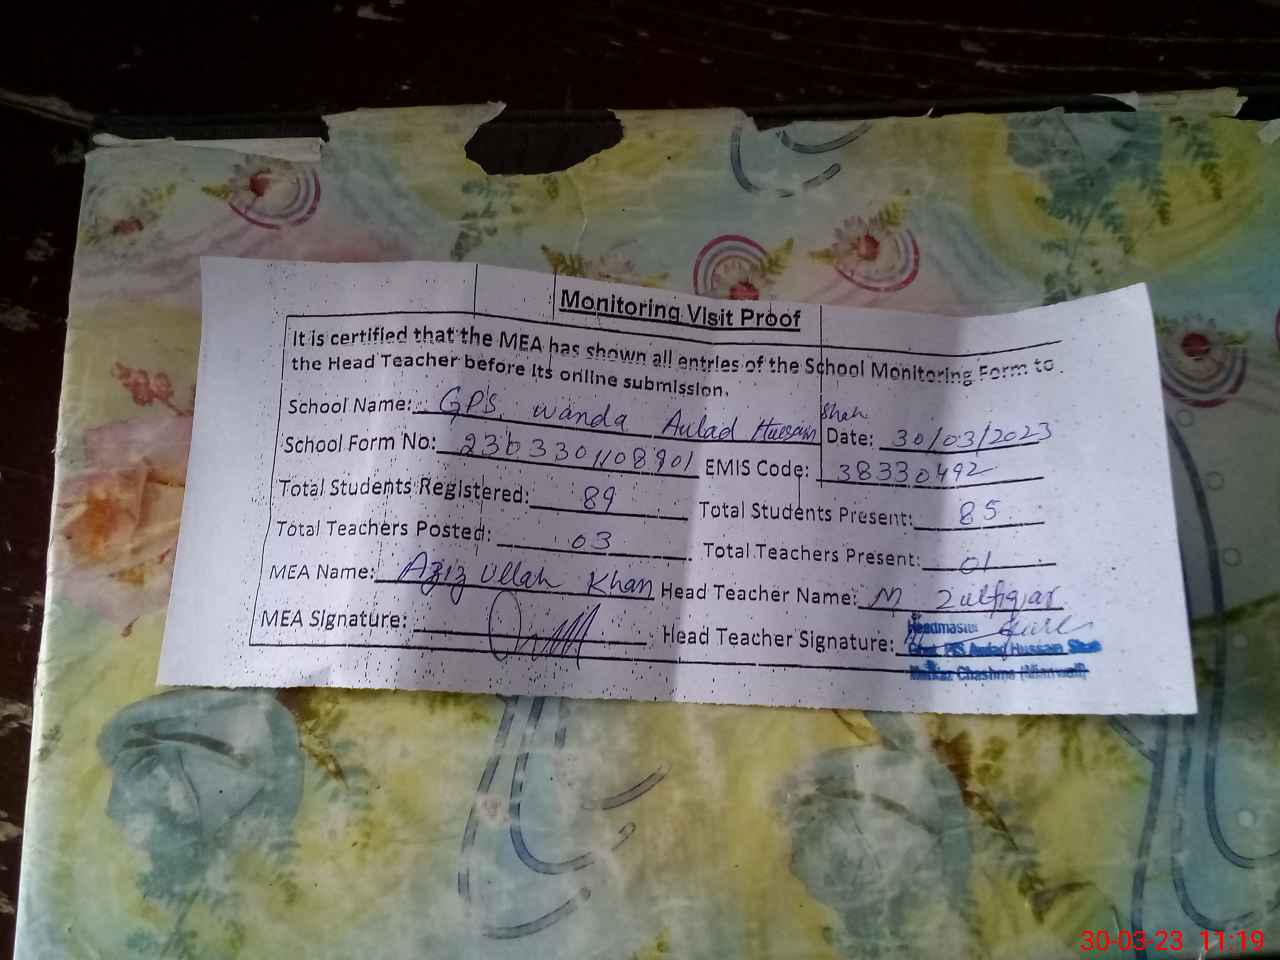 Monitoring Visit Proof
It is certified that the MEA has shown all entries of the School Monitoring Form to
the Head Teacher before its online submission.
School Name: GPS Wanda Aulad Hussain Shah Date: 30/03/2023
School Form No: 2363301108901 EMIS Code: 38330492
Total Students Registered: 89 Total Students Present: 85
Total Teachers Posted: 03 Total Teachers Present: 01
MEA Name: Aziz Ullah Khan Head Teacher Name: M Zulfiqar
MEA Signature: Head Teacher Signature:
Headmaster
Govt. P/S Aulad Hussain Shah
Markaz Chashma (Mianwali)
30-03-23 11:19